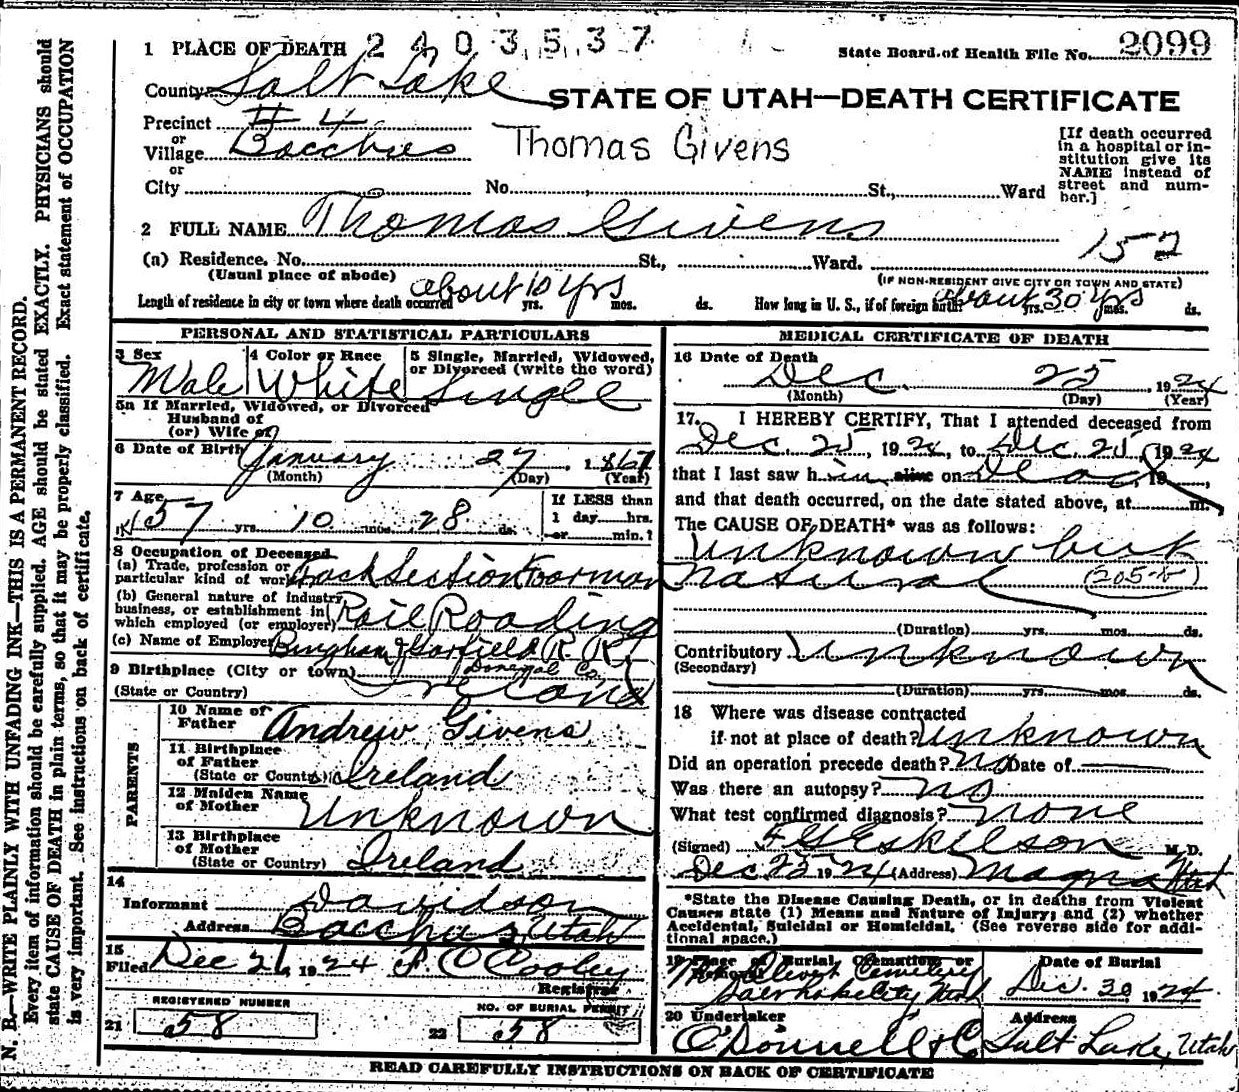 1 PLACE OF DEATH 2 4 0 3 5 3 7
State Board of Health File No. 2099
County Salt Lake
STATE OF UTAH—DEATH CERTIFICATE
Precinct # 4
or
Village Bacchus
Thomas Givens
or
City No. St., Ward
[If death occurred in a hospital or institution give its NAME instead of street and number.]
2 FULL NAME Thomas Givens
152
(a) Residence. No. St., Ward.
(Usual place of abode)
(IF NON-RESIDENT GIVE CITY OR TOWN AND STATE)
Length of residence in city or town where death occurred about 10 yrs yrs. mos. ds. How long in U. S., if of foreign birth? about 30 yrs yrs. mos. ds.
PERSONAL AND STATISTICAL PARTICULARS
3 Sex Male
4 Color or Race White
5 Single, Married, Widowed, or Divorced (write the word) Single
5a If Married, Widowed, or Divorced
Husband of
(or) Wife of
6 Date of Birth January 27, 1867
(Month) (Day) (Year)
7 Age 57 yrs. 10 mos. 28 ds.
If LESS than
1 day hrs.
or min.?
8 Occupation of Deceased
(a) Trade, profession or
particular kind of work Track Section Foorman
(b) General nature of industry,
business, or establishment in
which employed (or employer) Rail Roading
(c) Name of Employer Bingham & Garfield R. R.
9 Birthplace (City or town) Donegal Co.
(State or Country) Ireland
PARENTS
10 Name of
Father Andrew Givens
11 Birthplace
of Father
(State or Country) Ireland
12 Maiden Name
of Mother Unknown
13 Birthplace
of Mother
(State or Country) Ireland
14
Informant Davidson
Address Bacchus, Utah
15
Filed Dec 26, 1924
Registrar
REGISTERED NUMBER
21 58
NO. OF BURIAL PERMIT
22 58
MEDICAL CERTIFICATE OF DEATH
16 Date of Death
Dec. 25, 1924
(Month) (Day) (Year)
17. I HEREBY CERTIFY, That I attended deceased from
Dec. 25, 1924, to Dec. 25, 1924
that I last saw him alive on Dead, 19
and that death occurred, on the date stated above, at m.
The CAUSE OF DEATH* was as follows:
Unknown but
natural (205-b)
(Duration) yrs. mos. ds.
Contributory Unknown
(Secondary)
(Duration) yrs. mos. ds.
18 Where was disease contracted
if not at place of death? Unknown
Did an operation precede death? No Date of
Was there an autopsy? no
What test confirmed diagnosis? none
(Signed) Eskelson M. D.
Dec 25 1924 (Address) Magna Utah
*State the Disease Causing Death, or in deaths from Violent
Causes state (1) Means and Nature of Injury; and (2) whether
Accidental, Suicidal or Homicidal. (See reverse side for additional space.)
19 Place of Burial, Cremation or Removal Mt. Olivet Cemetery
Salt Lake City, Utah
Date of Burial
Dec. 30, 1924
20 Undertaker
O'Donnell & Co
Address
Salt Lake, Utah
READ CAREFULLY INSTRUCTIONS ON BACK OF CERTIFICATE
N. B.—WRITE PLAINLY WITH UNFADING INK—THIS IS A PERMANENT RECORD.
Every item of information should be carefully supplied. AGE should be stated EXACTLY. PHYSICIANS should
state CAUSE OF DEATH in plain terms, so that it may be properly classified. Exact statement of OCCUPATION
is very important. See instructions on back of certificate.